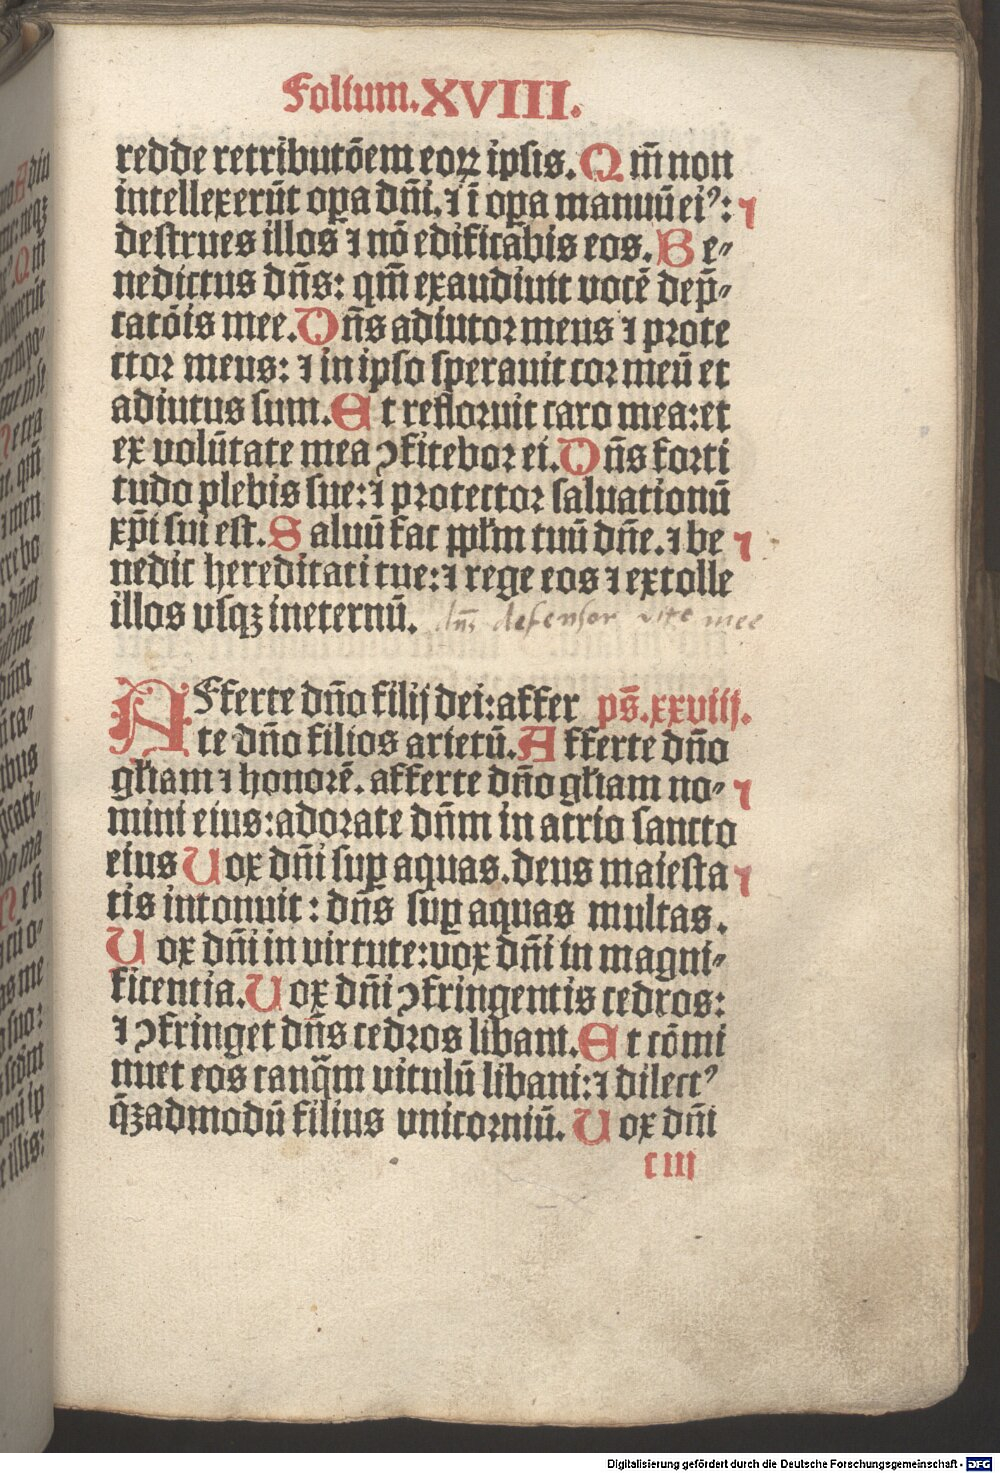 Folium.XVIII.
redde retributōem eoꝝ ipsis. Qm̄ non
intellexerūt oꝑa dn̄i. ⁊ ī oꝑa manuū eiꝰ: ⁊
destrues illos ⁊ nō edificabis eos. Be⸗
nedictus dn̄s: qm̄ exaudiuit vocē dep̄⸗
catōis mee. Dn̄s adiutor meus ⁊ prote
ctor meus: ⁊ in ipso sperauit cor meū et
adiutus sum. Et refloruit caro mea: et
ex volūtate mea ꝯfitebor ei. Dn̄s forti
tudo plebis sue: ⁊ protector saluationū
xp̄i sui est. Saluū fac pplm̄ tuū dn̄e. ⁊ be ⁊
nedic hereditati tue: ⁊ rege eos ⁊ extolle
illos vsqꝫ ineternū. dn̄s defensor vite mee
Afferte dn̄o filij dei: affer ps̄. xxviij.
te dn̄o filios arietū. Afferte dn̄o
gl̄iam ⁊ honorē. afferte dn̄o gl̄iam no⸗ ⁊
mini eius: adorate dn̄m in atrio sancto
eius Uox dn̄i suꝑ aquas. deus maiesta ⁊
tis intonuit: dn̄s suꝑ aquas multas.
Uox dn̄i in virtute: vox dn̄i in magni⸗
ficentia. Uox dn̄i ꝯfringentis cedros:
⁊ ꝯfringet dn̄s cedros libani. Et cōmi
nuet eos tanq̄m vitulū libani: ⁊ dilectꝰ
q̄ꝫadmodū filius vnicorniū. Uox dn̄i
c iii
Digitalisierung gefördert durch die Deutsche Forschungsgemeinschaft - DFG